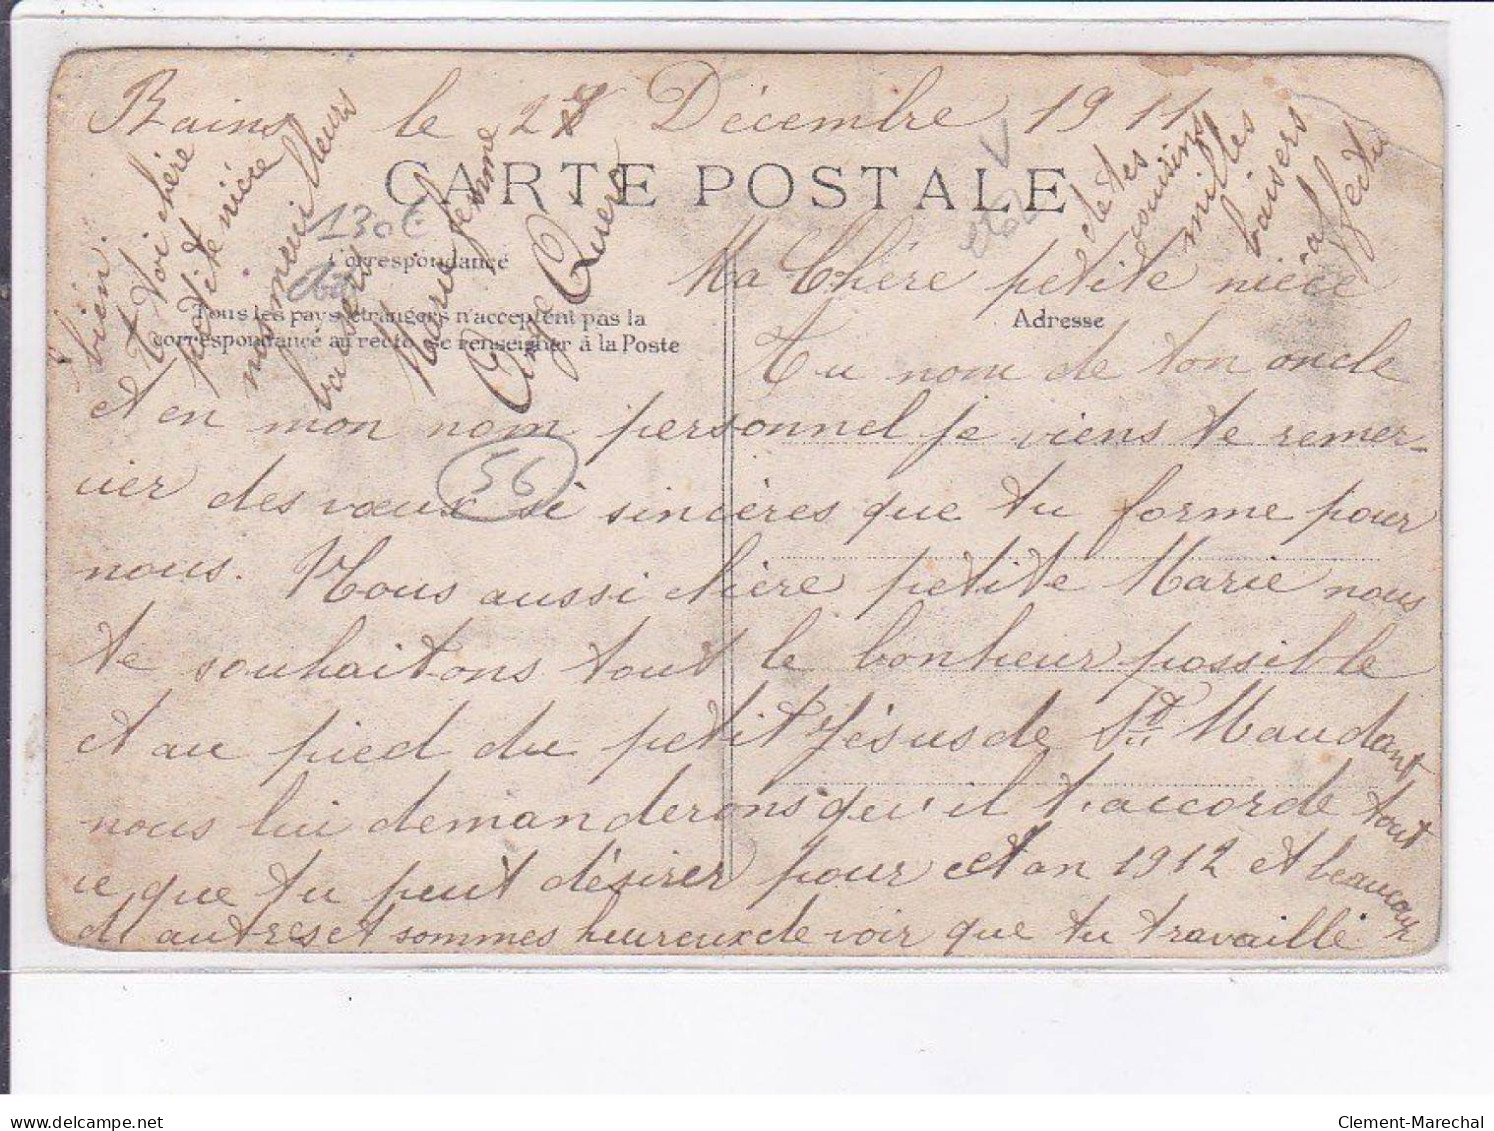 Bains le 28 Décembre 1911
CARTE POSTALE
Correspondance
Tous les pays étrangers n'acceptent pas la
correspondance au recto, se renseigner à la Poste
Adresse
130€
56
Ma Chère petite nièce
Au nom de ton oncle
et en mon nom personnel je viens te remer-
cier des vœux si sincères que tu forme pour
nous. Nous aussi chère petite Marie nous
te souhaitons tout le bonheur possible
et au pied du petit Jésus de St Maudant
nous lui demanderons qu'il t'accorde tout
ce que tu peut désirer pour cet an 1912 et beaucoup
d'autres et sommes heureux de voir que tu travaille
bien.
et toi chère
petite nièce
nos meilleurs
baisers
Marie Jeanne
Ange
de tes
cousins
milles
baisers
affectu
Clement-Marechal
delcampe.net